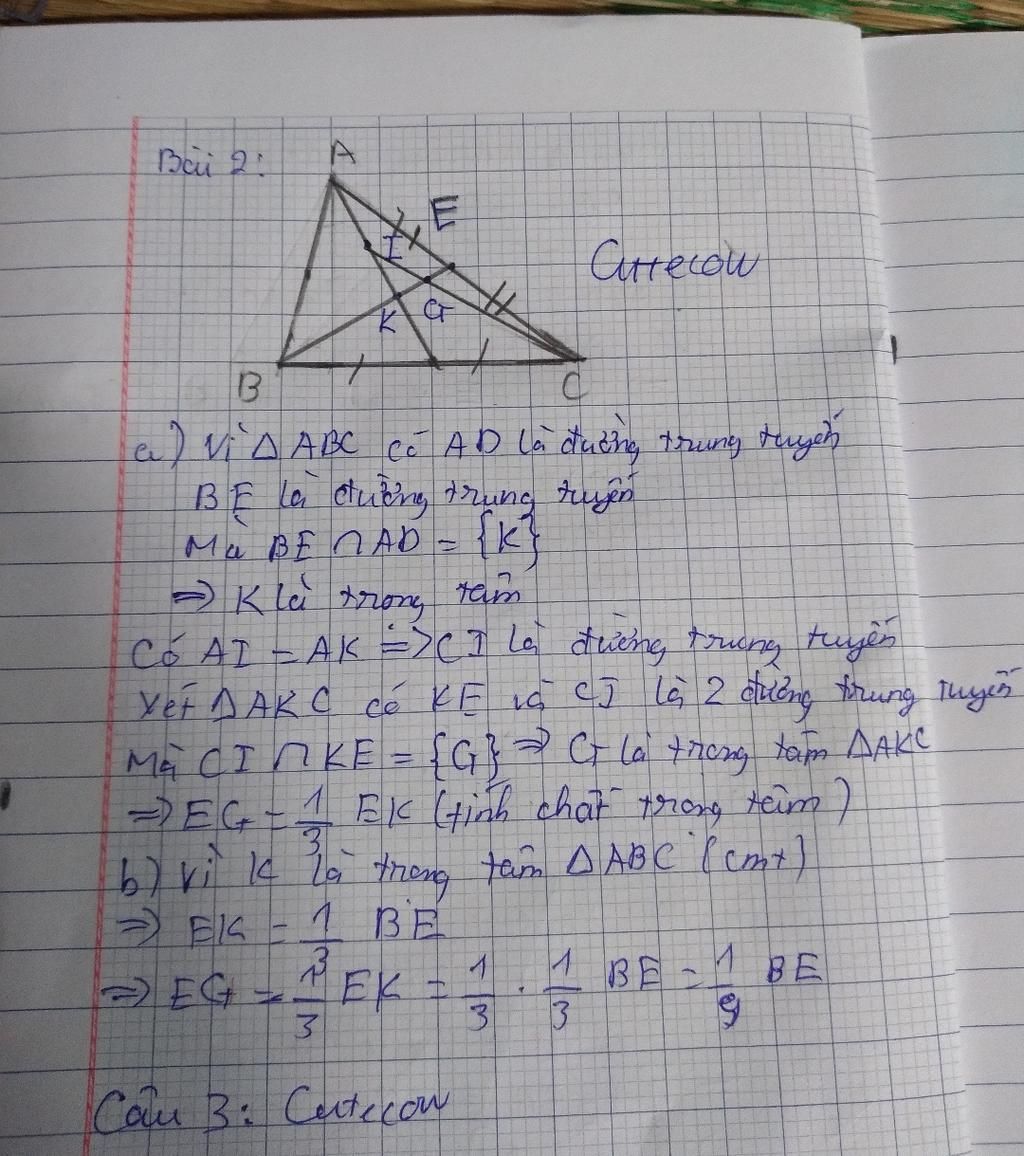 Bài 2:
A
E
I
Cutecow
K
G
B
C
a) Vì Δ ABC có AD là đường trung tuyến
BE là đường trung tuyến
Mà BE ∩ AD = {K}
⇒ K là trọng tâm
Có AI = AK ⇒ CI là đường trung tuyến
Xét Δ AKC có KE và CI là 2 đường trung tuyến
Mà CI ∩ KE = {G} ⇒ G là trọng tâm ΔAKC
⇒ EG = 1/3 EK (tính chất trọng tâm)
b) Vì K là trọng tâm ΔABC (cmt)
⇒ EK = 1/3 BE
⇒ EG = 1/3 EK = 1/3 . 1/3 BE = 1/9 BE
Câu 3: Cutecow